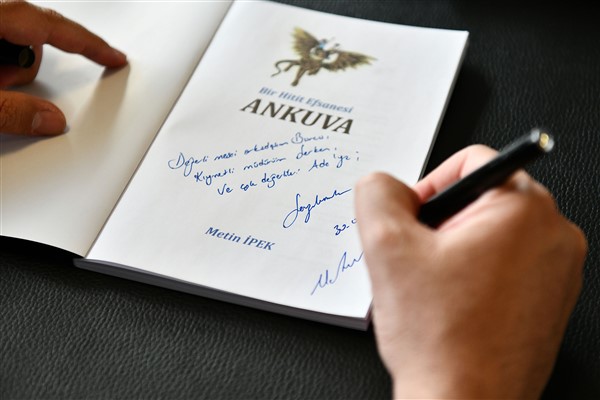 Bir Hitit Efsanesi
ANKUVA
Değerli mesai arkadaşım Burcu,
Kıymetli müdürüm Serkan,
Ve çok değerli Ada'ya;
Metin İPEK